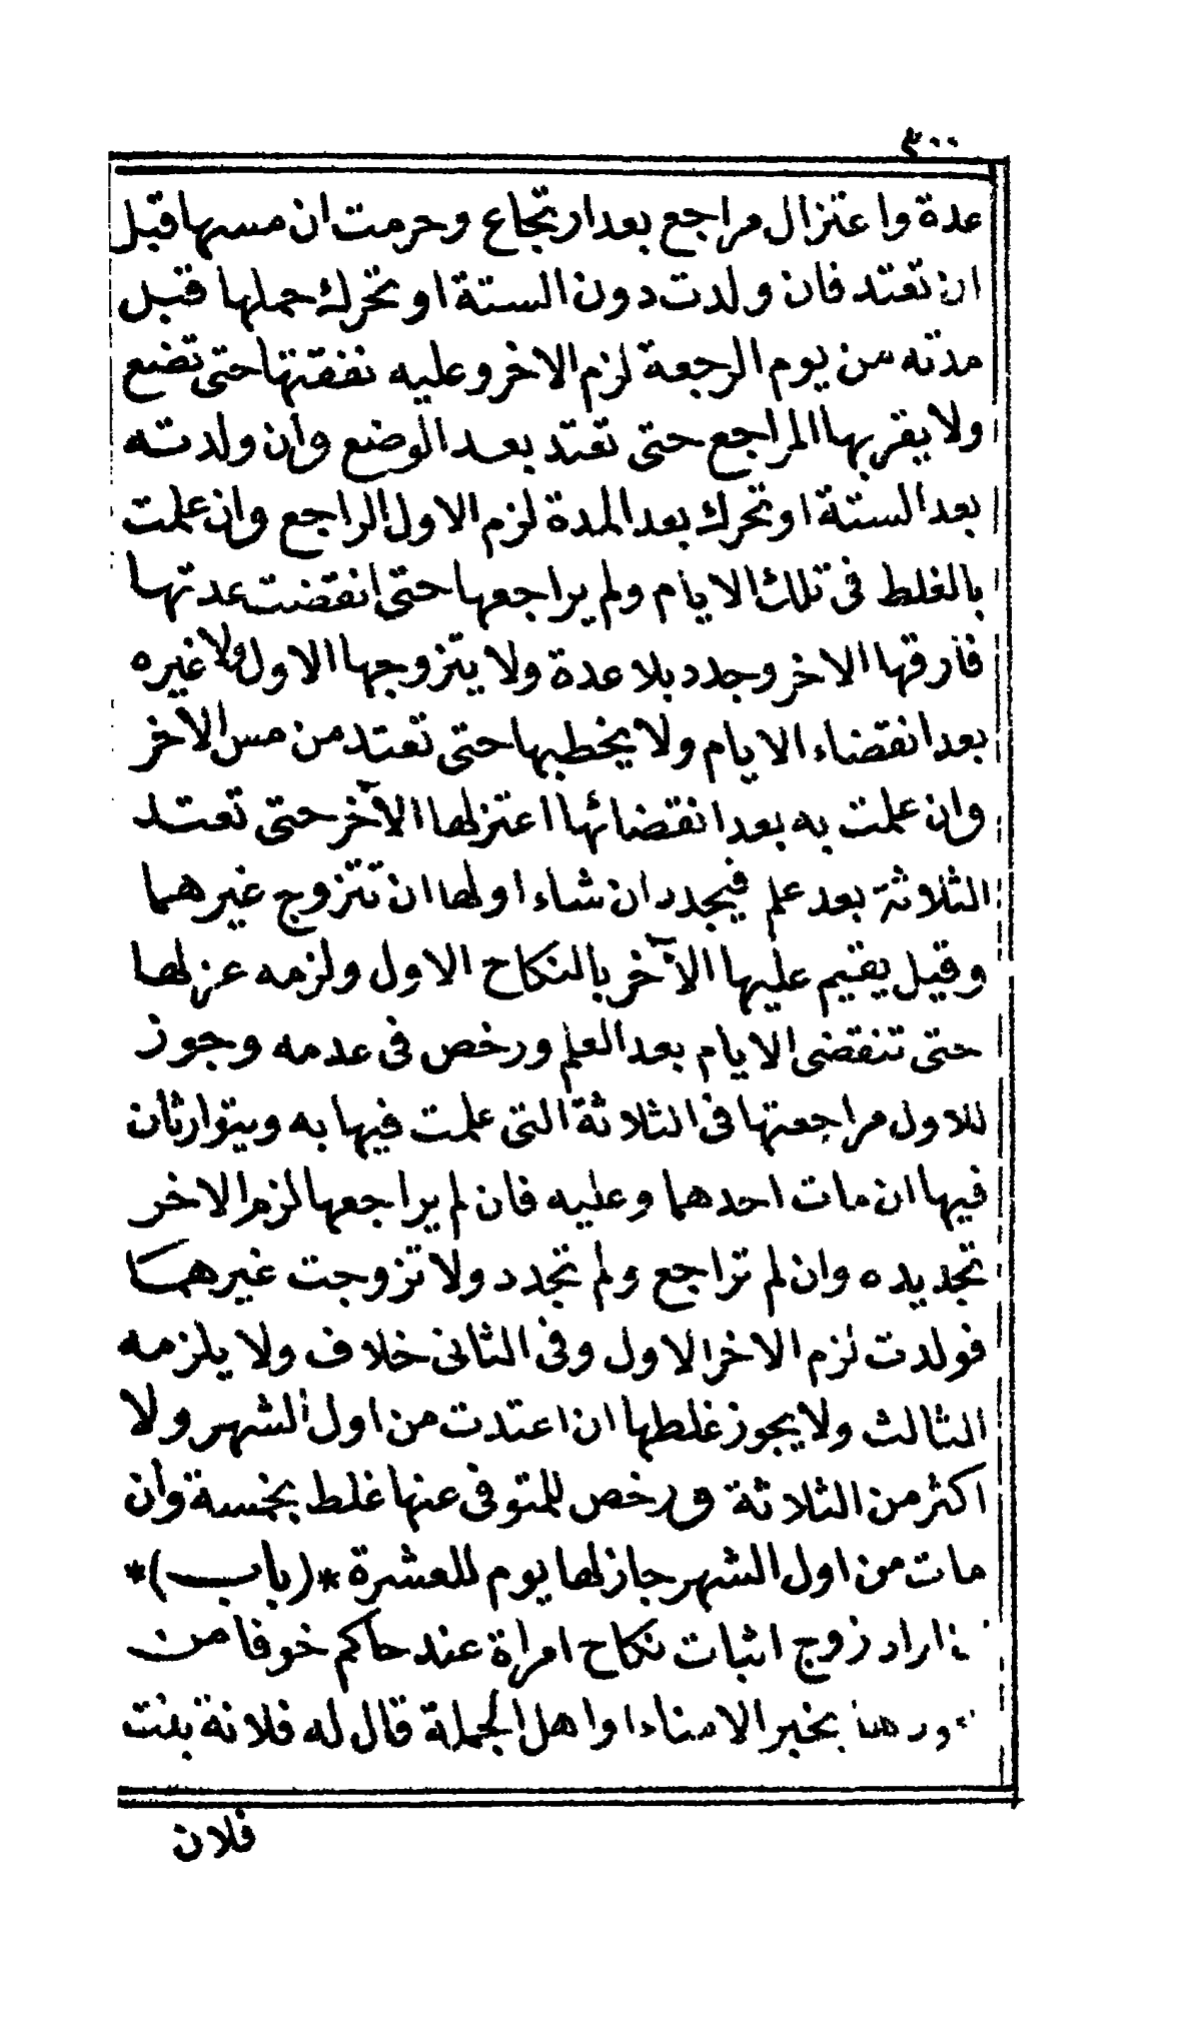 ٣٠٠
عدة واعتزال مراجع بعد ارتجاع وحرمت ان مسها قبل
ان تعتد فان ولدت دون الستة او تحرك حملها قبل
مدته من يوم الرجعة لزم الاخر وعليه نفقتها حتى تضع
ولا يقربها المراجع حتى تعتد بعد الوضع وان ولدته
بعد الستة او تحرك بعد المدة لزم الاول الراجع وان علمت
بالغلط فى تلك الايام ولم يراجعها حتى انقضت عدتها
فارقها الاخر وجدد بلا عدة ولا يتزوجها الاول ولا غيره
بعد انقضاء الايام ولا يخطبها حتى تعتد من مس الآخر
وان علمت به بعد انقضائها اعتزلها الآخر حتى تعتد
الثلاثة بعد علم فيجدد ان شاء او لها ان تتزوج غيرهما
وقيل يقيم عليها الآخر بالنكاح الاول ولزمه عزلها
حتى تنقضى الايام بعد العلم ورخص فى عدمه وجوز
للاول مراجعتها فى الثلاثة التى علمت فيها به ويتوارثان
فيها ان مات احدهما وعليه فان لم يراجعها لزم الاخر
تجديده وان لم تراجع ولم تجدد ولا تزوجت غيرهما
فولدت لزم الاخر الاول وفى الثانى خلاف ولا يلزمه
الثالث ولا يجوز غلطها ان اعتدت من اول الشهر ولا
اكثر من الثلاثة ورخص للمتوفى عنها غلط بخمسة وان
مات من اول الشهر جاز لها يوم للعشرة *(باب)*
اراد زوج اثبات نكاح امراة عند حاكم خوفا من
بخبر الامناء او اهل الجملة قال له فلانة بنت
فلان